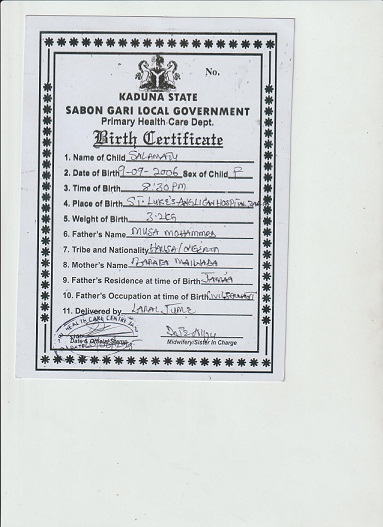 No.
KADUNA STATE
SABON GARI LOCAL GOVERNMENT
Primary Health Care Dept.
Birth Certificate
1. Name of Child SALAMATU
2. Date of Birth 9-09-2006 Sex of Child F
3. Time of Birth 8:30PM
4. Place of Birth ST. LUKE'S ANGLICAN HOSPITAL
5. Weight of Birth 3.2KG
6. Father's Name MUSA MOHAMMED
7. Tribe and Nationality HAUSA/
8. Mother's Name MAIWADA
9. Father's Residence at time of Birth JAMAA
10. Father's Occupation at time of Birth CIVIL SERVANT
11. Delivered by LARAI JUMLE
HEALTH CARE CENTRE
Date & Official Stamp
Midwifery/Sister In Charge